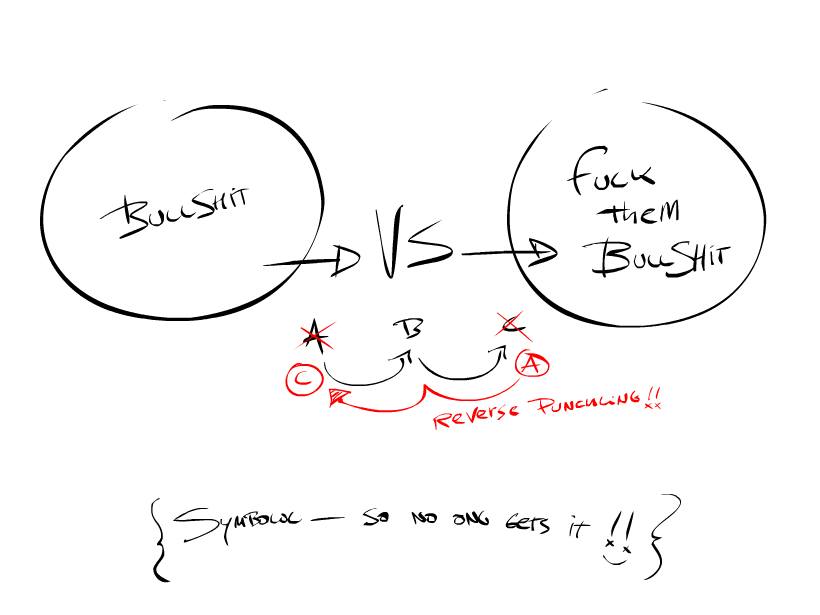 BULLSHIT
VS
FUCK
THEM
BULLSHIT
A B C
C A
REVERSE PUNCHLING!!
{SYMBOLIC — SO NO ONE GETS IT !!}